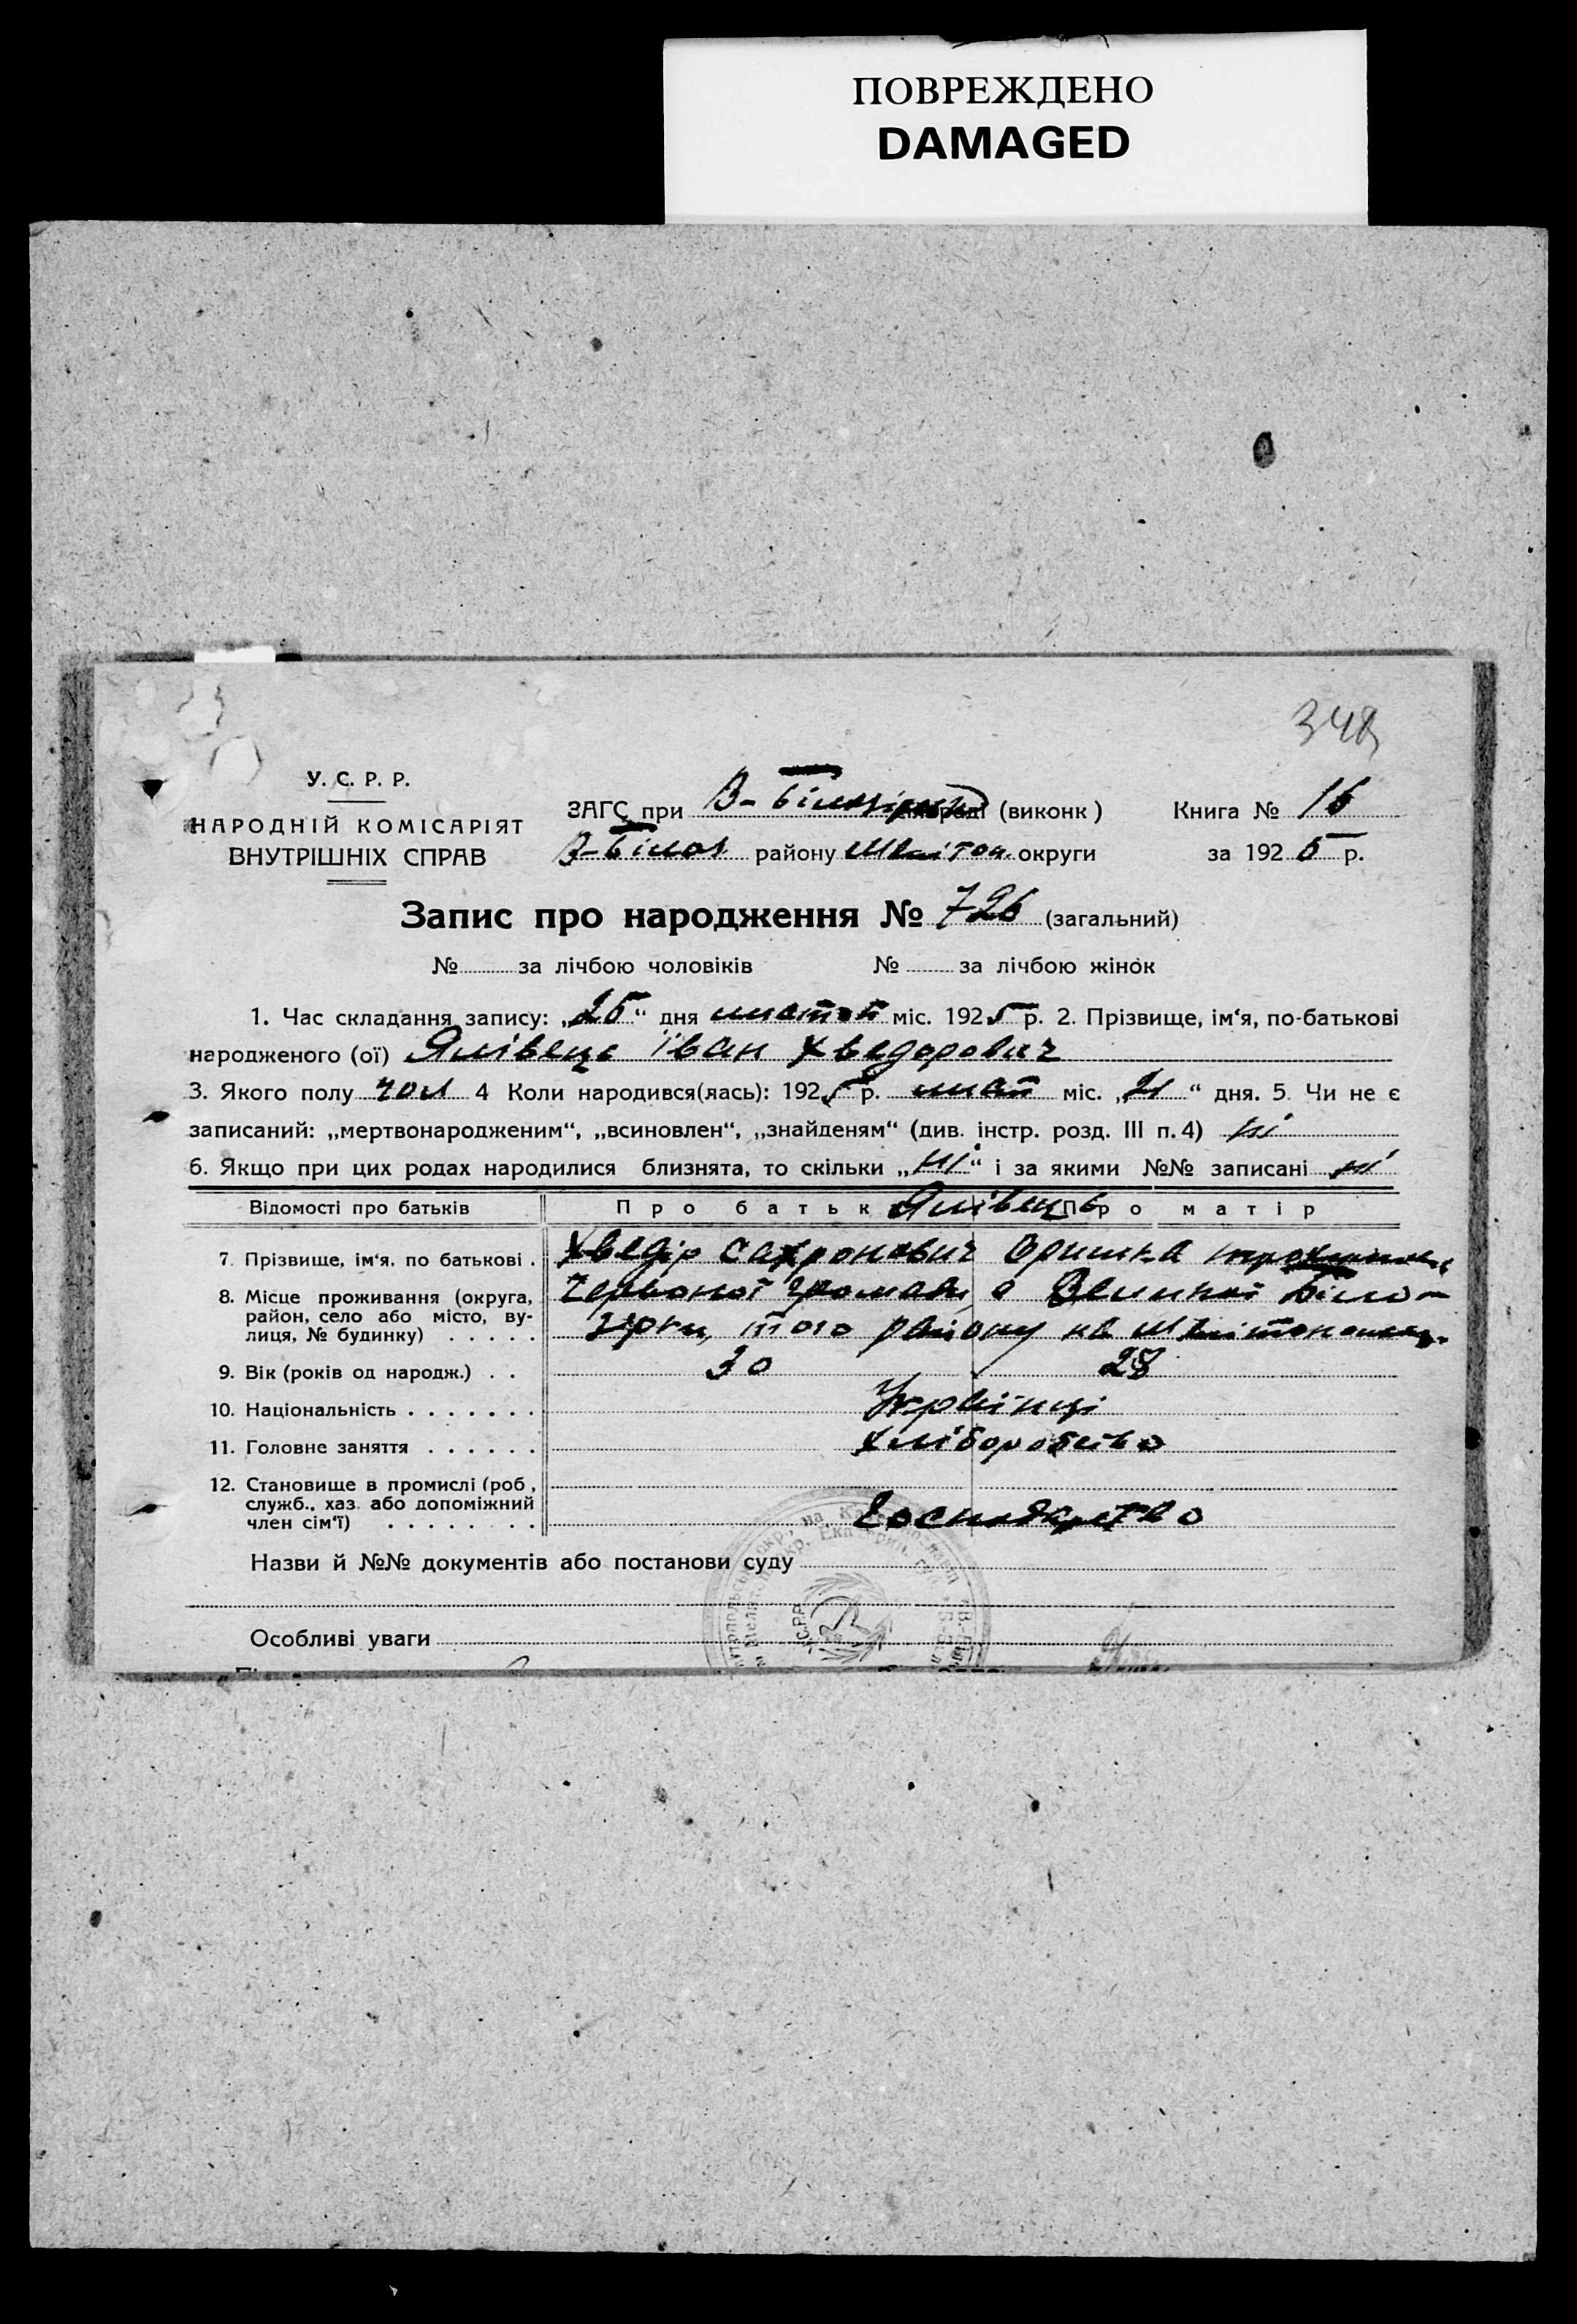 ПОВРЕЖДЕНО
DAMAGED
348
У. С. Р. Р.
НАРОДНІЙ КОМІСАРІЯТ
ВНУТРІШНІХ СПРАВ
ЗАГС при В-Білозірськ раді (виконк) Книга № 16
В-Білоз району Мелітоп округи за 1925 р.
Запис про народження № 726 (загальний)
№ за лічбою чоловіків № за лічбою жінок
1. Час складання запису: „25“ дня листоп міс. 1925 р. 2. Прізвище, ім‘я, по-батькові
народженого (ої) Ялівець Іван Хведорович
3. Якого полу чол 4 Коли народився(лась): 1925 р. лист міс. „21“ дня. 5. Чи не є
записаний: „мертвонародженим“, „всиновлен“, „знайденям“ (див. інстр. розд. III п. 4) ні
6. Якщо при цих родах народилися близнята, то скільки „ні“ і за якими №№ записані ні
Відомості про батьків Про батьк Ялівець Про матір
7. Прізвище, ім‘я, по батькові . Хведір Сахронович Оришка
8. Місце проживання (округа, район, село або місто, вулиця, № будинку) . . . . . Червоної Громади, с Великої Біло-
зірки, того району на
9. Вік (років од народж.) . . 30 28
10. Національність . . . . . . . Українці
11. Головне заняття . . . . . . Хліборобство
12. Становище в промислі (роб,
служб., хаз. або допоміжний
член сім‘ї) . . . . . . . . Господарство
Назви й №№ документів або постанови суду
Особливі уваги